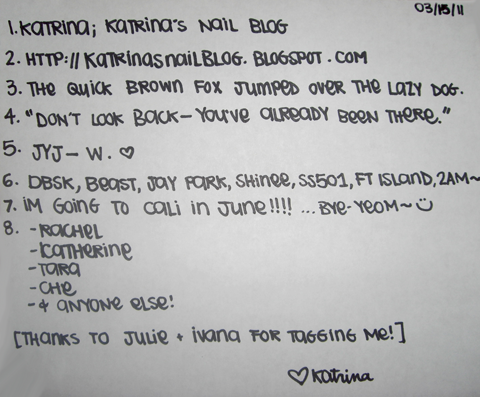 03/15/11
1. Katrina; Katrina's Nail Blog
2. HTTP://KATRINASNAILBLOG.BLOGSPOT.COM
3. The quick brown fox jumped over the lazy dog.
4. "Don't look back – you've already been there."
5. JYJ – W. ♡
6. DBSK, Beast, Jay Park, SHINee, SS501, FT Island, 2AM~
7. im going to cali in June!!!! ... Bye-Yeom~ ☺
8. - Rachel
- Katherine
- Tara
- Che
- & anyone else!
[Thanks to Julie + Ivana for tagging me!]
♡Katrina